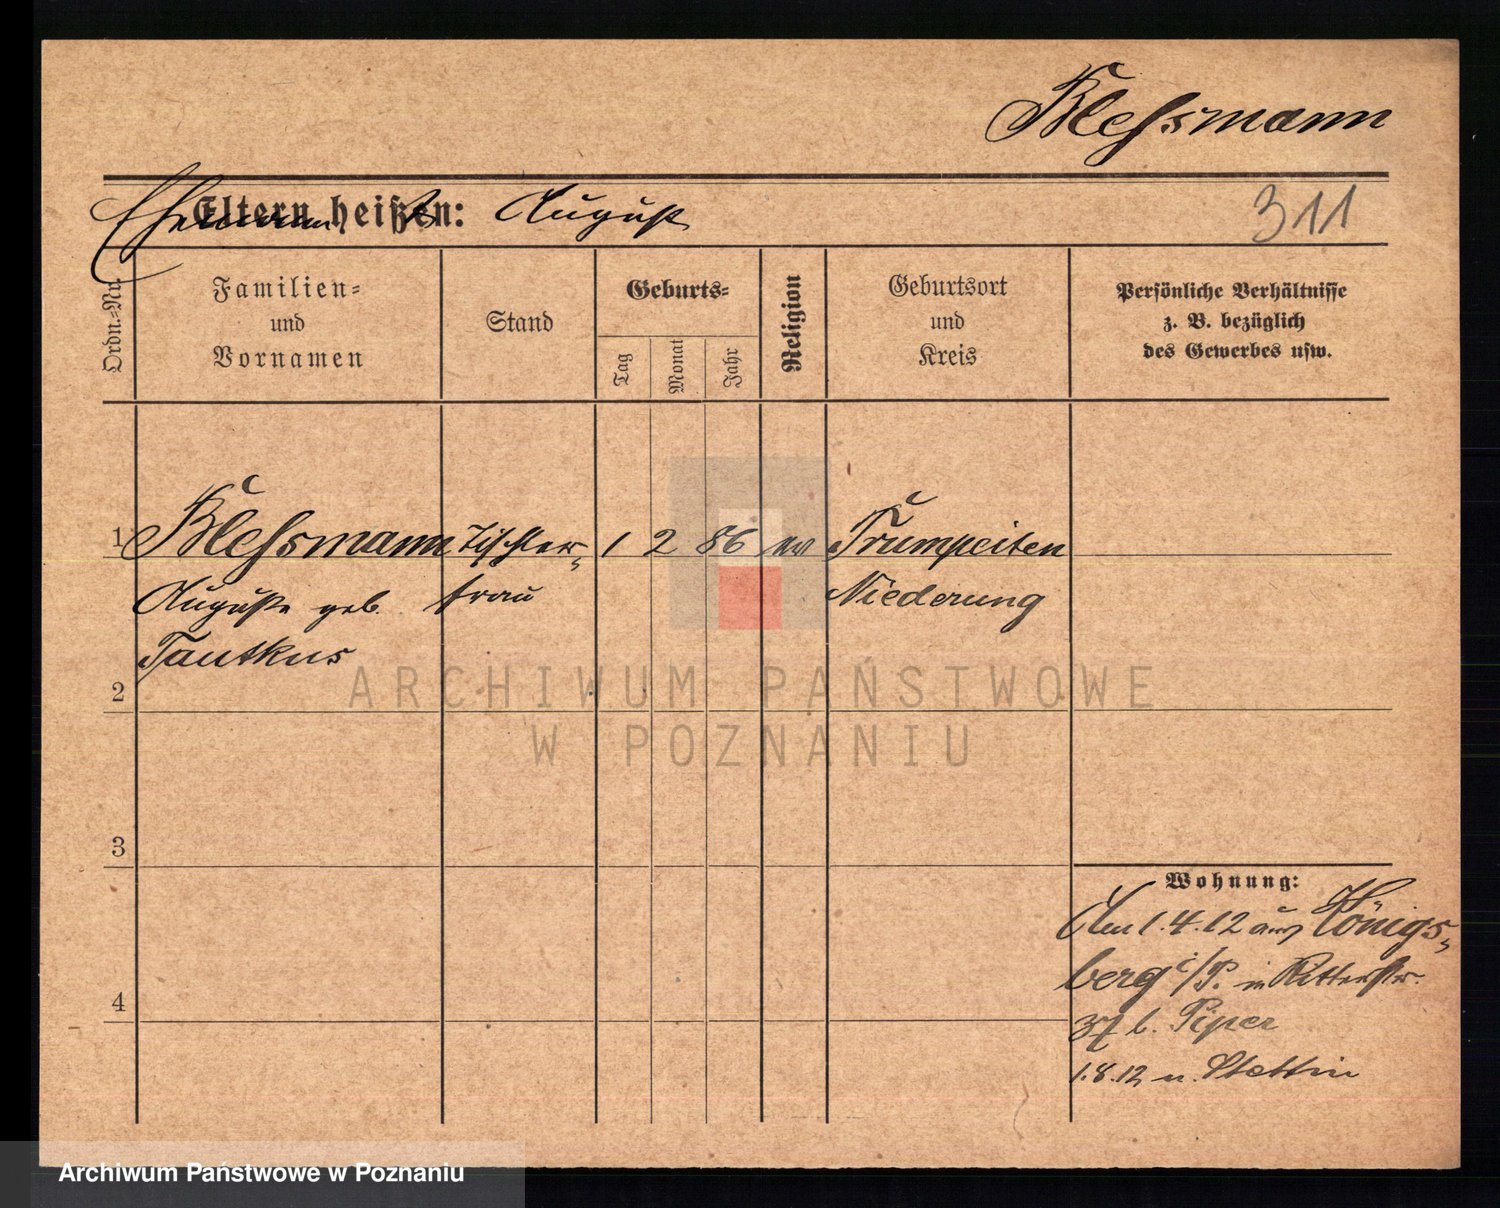 Blessmann
Eltern heißen: August
Ehemann
311
Ordn.-Nr.
Familien-
und
Vornamen
Stand
Geburts-
Tag
Monat
Jahr
Religion
Geburtsort
und
Kreis
Persönliche Verhältnisse
z. B. bezüglich
des Gewerbes usw.
1 Blessmann Tischler- 1 2 86 ev Trumpeiten
Auguste geb. frau Niederung
Tautkus
2
3
4
Wohnung:
Am 1.4.12 aus Königs-
berg i/P. in Ritterstr.
37 b. Piper
1.8.12 n. Stettin
ARCHIWUM PAŃSTWOWE
W POZNANIU
Archiwum Państwowe w Poznaniu